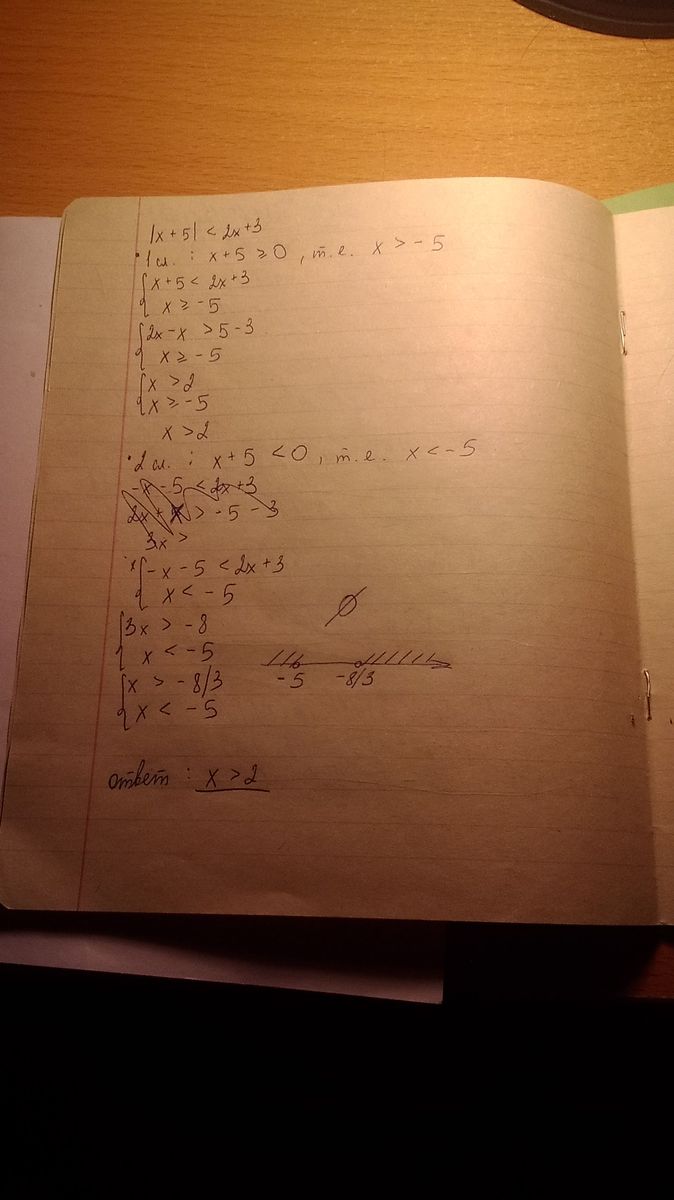 |x + 5| < 2x+3
• 1 сл. : x + 5 ≥ 0 , т. е. x > - 5
{ x + 5 < 2x + 3
x ≥ - 5
{ 2x - x > 5 - 3
x ≥ - 5
{ x > 2
x ≥ - 5
x > 2
• 2 сл. : x + 5 < 0 , т. е. x < - 5
-x - 5 < 2x + 3
> - 5 - 3
3x >
{ - x - 5 < 2x + 3
x < - 5
∅
{ 3x > - 8
x < - 5
- 5 -8/3
{ x > - 8/3
x < - 5
ответ : x > 2